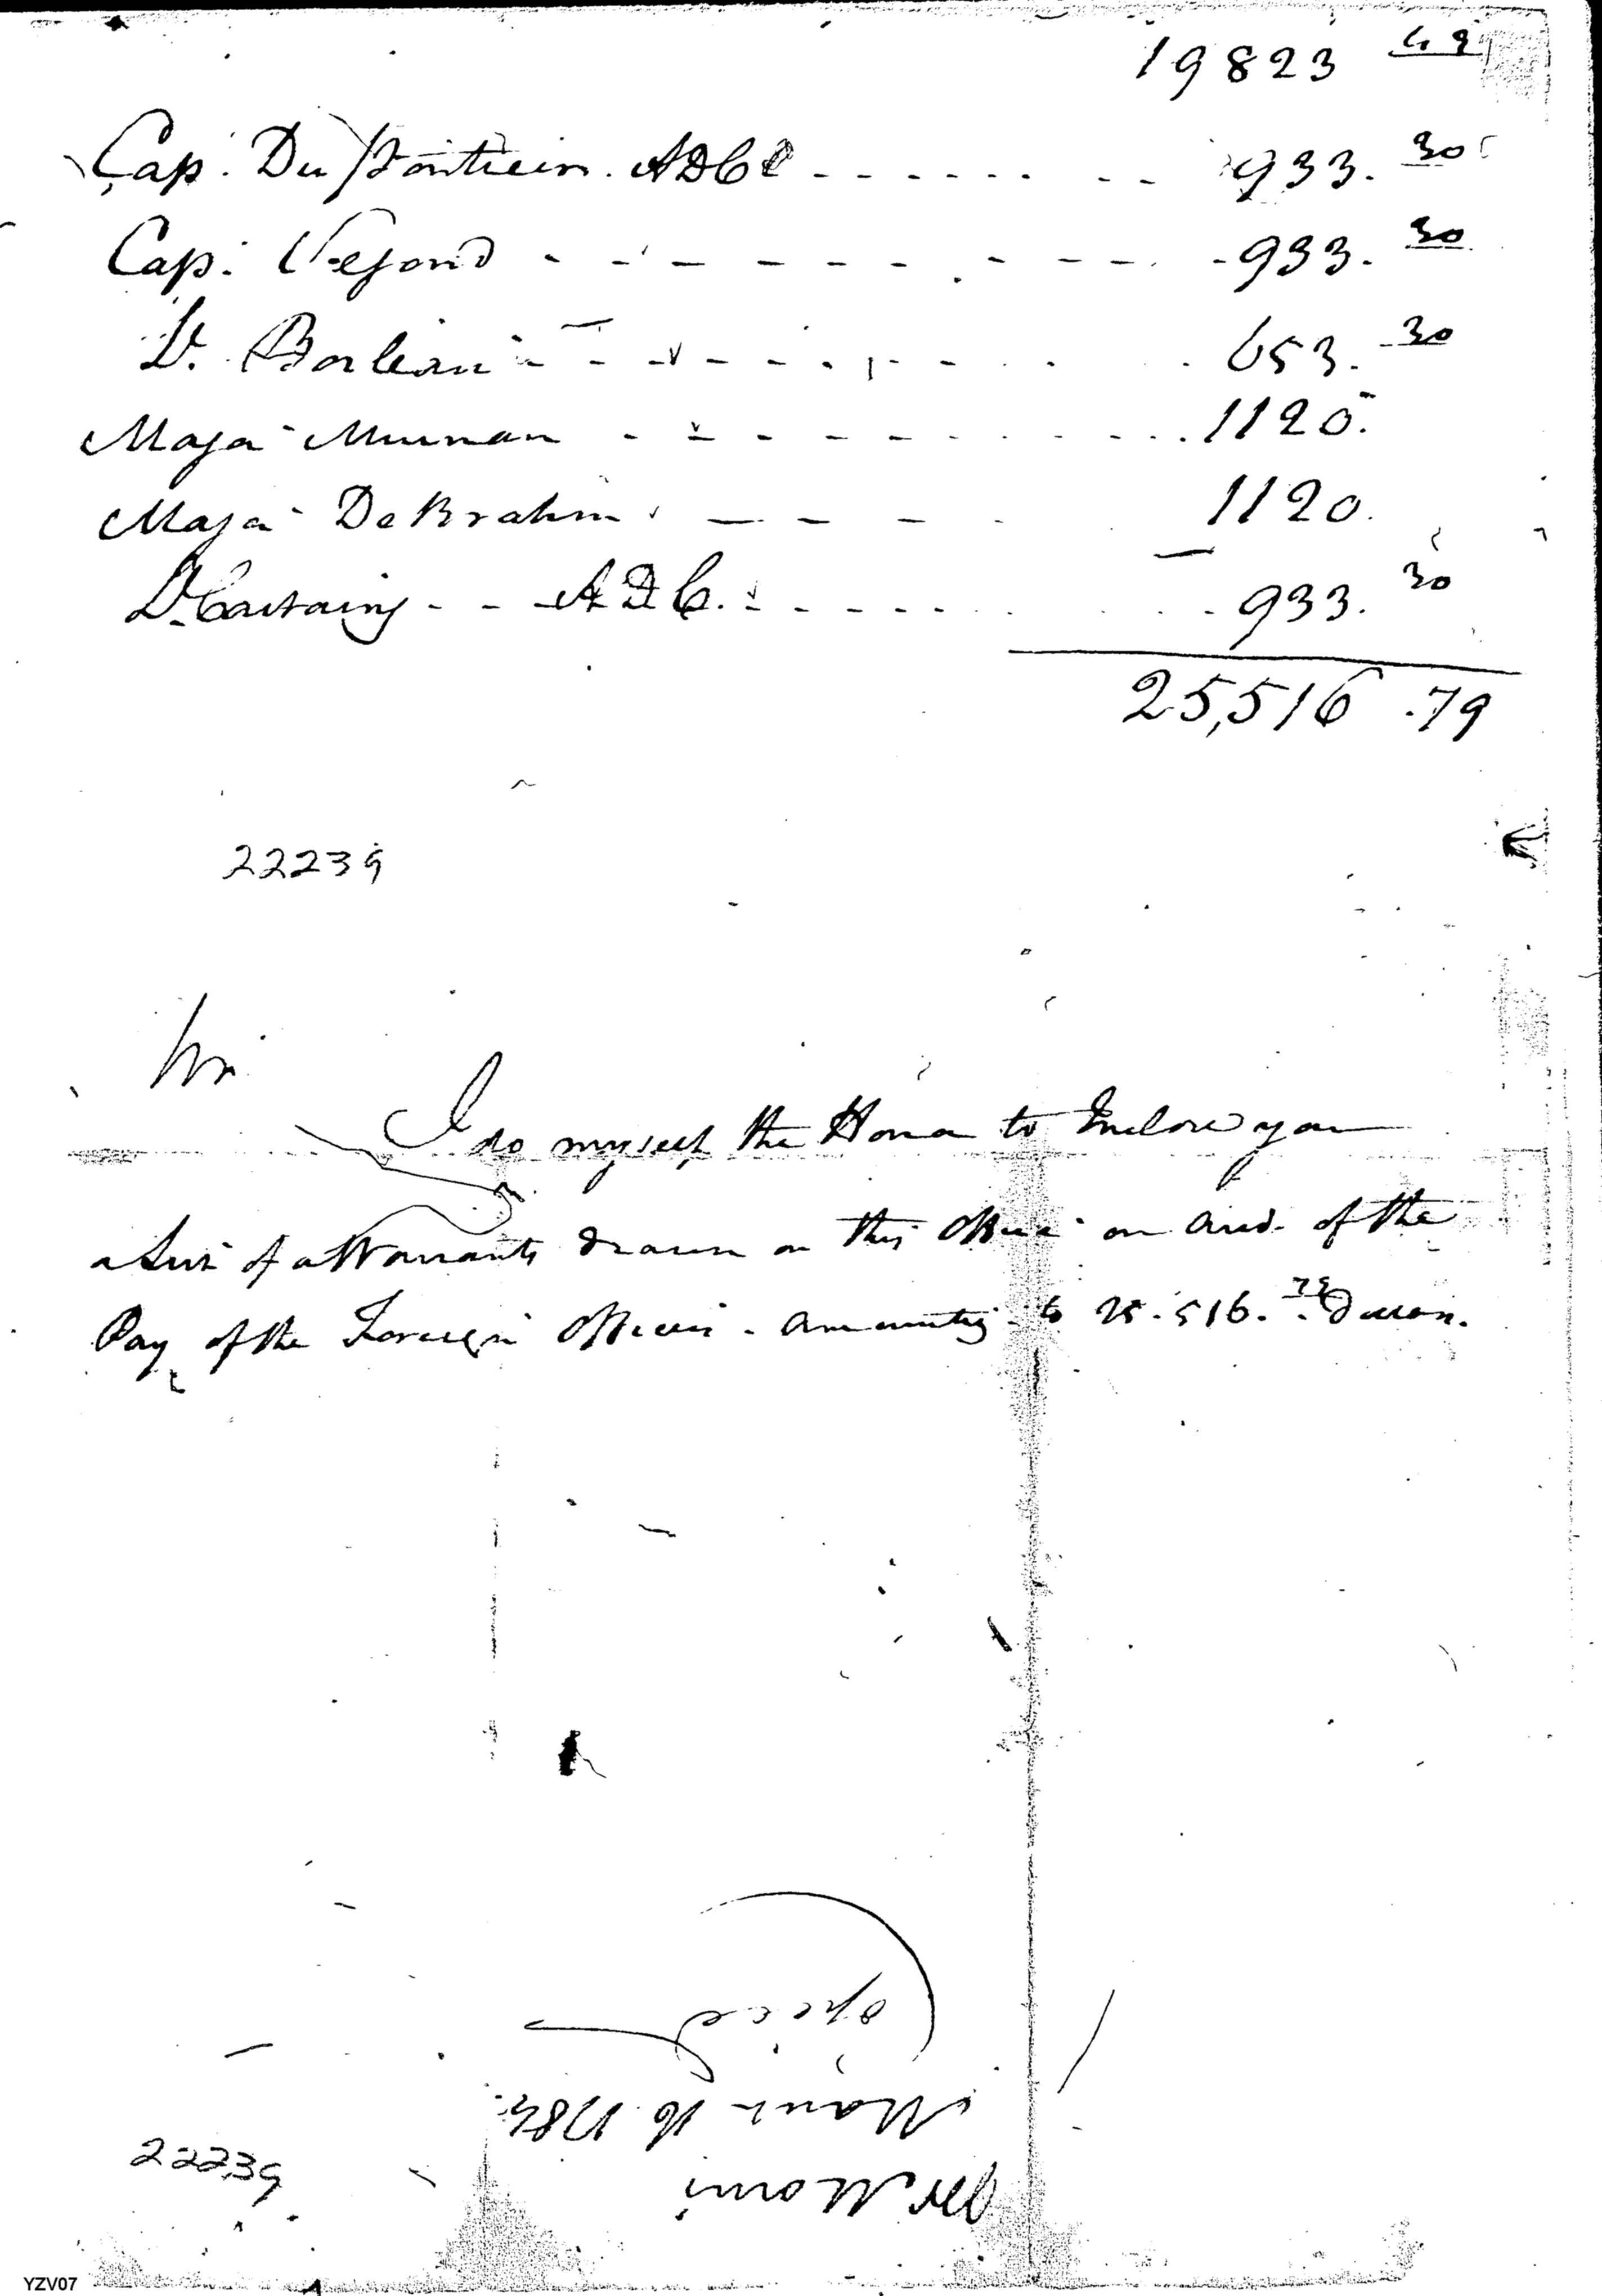 19823 49
Cap. Du Pontiein. ADC 933. 30
Cap. Segond 933. 30
Lt. Borlean 653. 30
Majr Murnan 1120.
Majr De Brahm 1120.
Lt. Castaing ADC. 933. 30
25,516 .79
22239
Sir
I do myself the Honor to Inclose you
a List of Warrants drawn on this Office on Acct. of the
Pay of the Foreign Officers. amounting to 25.516. 79 Dollars.
Copied
March 16. 1784
Mr. Morris
22239
YZV07